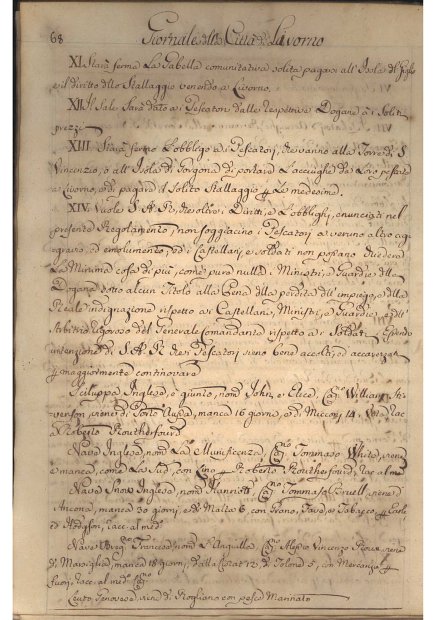 68 Giornale della Città di Livorno
XI. Starà ferma La Gabella comunitativa solita pagarsi all' Isola del Giglio
e il diritto dello Stallaggio venendo a Livorno.
XII. Il Sale Sarà dato a' Pescatori dalle respettive Dogane a i Soliti
prezzi
XIII. Starà fermo L'obbligo a' Pescatori, che vanno alla Torre di S.
Vincenzio, o all' Isola di Gorgona di portare L'acciughe da Loro pescate
a Livorno, e di pagare il Solito Stallaggio le medesime.
XIV. Vuole S. A. R. che oltre i Diritti, e L'obblighi, enunciati nel
presente Regolamento, non soggiacino i Pescatori a veruno altro
aggravio, ed emolumento, e i Castellani, e soldati non possano
La Minima cosa di più, come pure nulla i Ministri, e Guardie della
Dogana sotto alcun Titolo alla Pena della perdita dell' impiego, e della
Reale indignazione rispetto a' Castellani, Ministri, e Guardie, e dell'
Arbitrio rigoroso del Generale Comandante rispetto a' Soldati,
intenzione di S. A. R. che i Pescatori sieno bene accolti, ed accarezzati
maggiormente
Inglese, è giunto, nom. John, e Cap.no William
viene di Porto manca 16 giorni, e di 14.
a Roberto Routherfourd
Nave Inglese, nom. La Munificenza, Cap.no Tommaso White, viene
e manca, come La Sud. con Lino Roberto Routherfourd, Rac. al med.
Nave Snow Inglese, nom. Cap.no Tommaso viene d'
Ancona, manca 30 giorni, e da Malta 6, con Grano, Fave, e Tabacco
Hodgson, racc. al med.
Nave Francese, nom. L' Cap.no Vincenzo viene
di Marsiglia, manca 18 giorni, e dalla 12, e di Tolone 5, con Mercanzie
racc. al med. Cap.no
Leuto Genovese, viene di Rogliano con pesce Marinato